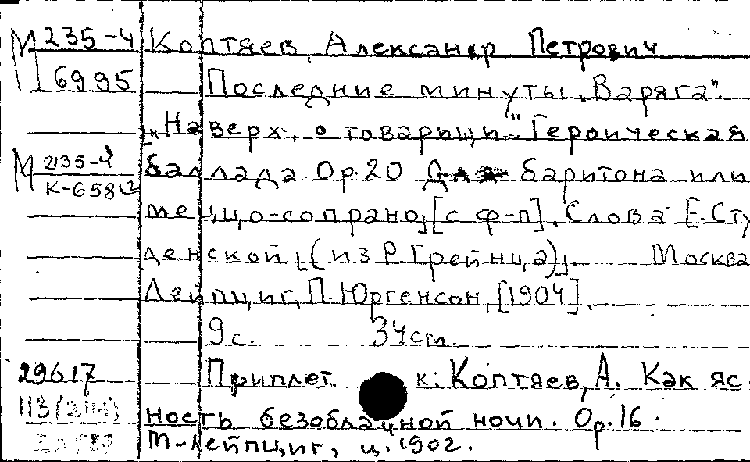 М 235-4 Коптяев, Александр Петрович
П 6995 Последние минуты „Варяга".
[„Наверх, о товарищи" Героическая
М 235-4 баллада Ор.20 Для баритона или
К-658 меццо-сопрано,[с ф-п]. Слова Е.Сту
денской,[(из Р.Грейнца)]. Москва
Лейпциг, П.Юргенсон, [1904].
9с. 34см.
29617 Приплет к: Коптяев, А. Как яс
ность безоблачной ночи. Ор.16.
М-Лейпциг, ц. 1902.